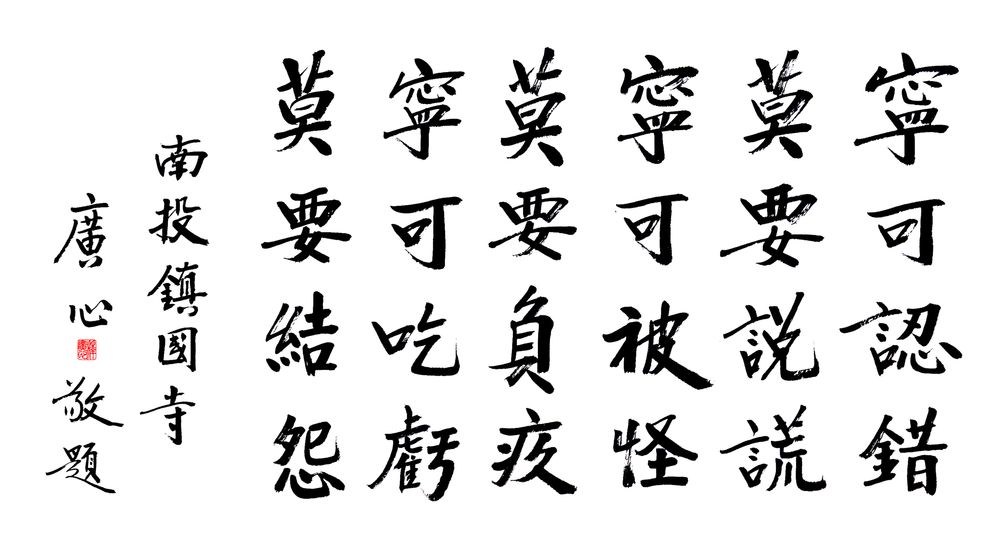 寧可認錯
莫要説謊
寧可被怪
莫要負疚
寧可吃虧
莫要結怨
南投鎮國寺
廣心敬題